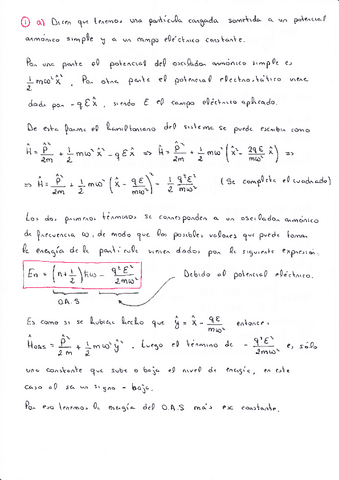 ① a) Dicen que tenemos una partícula cargada sometida a un potencial
armónico simple y a un campo eléctrico constante.
Por una parte el potencial del oscilador armónico simple es
1/2 mω² x̂². Por otra parte el potencial electrostático viene
dado por -qEx̂, siendo E el campo eléctrico aplicado.
De esta forma el hamiltoniano del sistema se puede escribir como
Ĥ = p̂²/2m + 1/2 mω² x̂² - qEx̂ ⇒ Ĥ = p̂²/2m + 1/2 mω² (x̂² - 2qE/mω² x̂) ⇒
⇒ Ĥ = p̂²/2m + 1/2 mω² (x̂ - qE/mω²)² - 1/2 q²E²/mω² (Se completa el cuadrado)
Los dos primeros términos se corresponden a un oscilador armónico
de frecuencia ω, de modo que los posibles valores que puede tomar
la energía de la partícula vienen dados por la siguiente expresión:
En = (n + 1/2) ħω - q²E²/2mω² Debido al potencial eléctrico.
O.A.S
Es como si se hubiera hecho que ŷ = x̂ - qE/mω² entonces:
ĤOAS = p̂²/2m + 1/2 mω² ŷ². Luego el término de - q²E²/2mω² es, sólo
una constante que sube o baja el nivel de energía, en este
caso al ser un signo - baja.
Por eso tenemos la energía del O.A.S más esa constante.